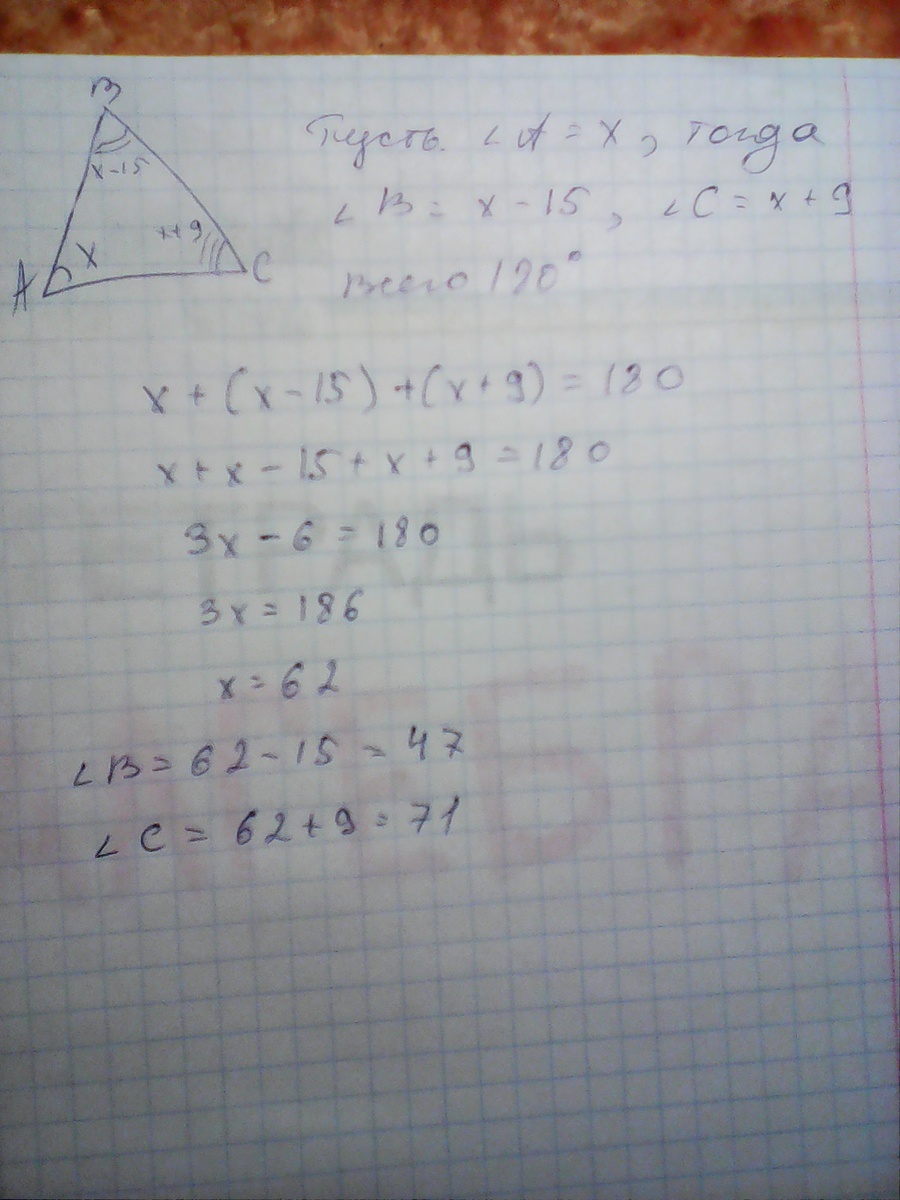 B
x-15
x+9
x
A
C
Пусть ∠A = x, тогда
∠B = x - 15, ∠C = x + 9
Всего 180°
x + (x - 15) + (x + 9) = 180
x + x - 15 + x + 9 = 180
3x - 6 = 180
3x = 186
x = 62
∠B = 62 - 15 = 47
∠C = 62 + 9 = 71
ТЕТРАДЬ